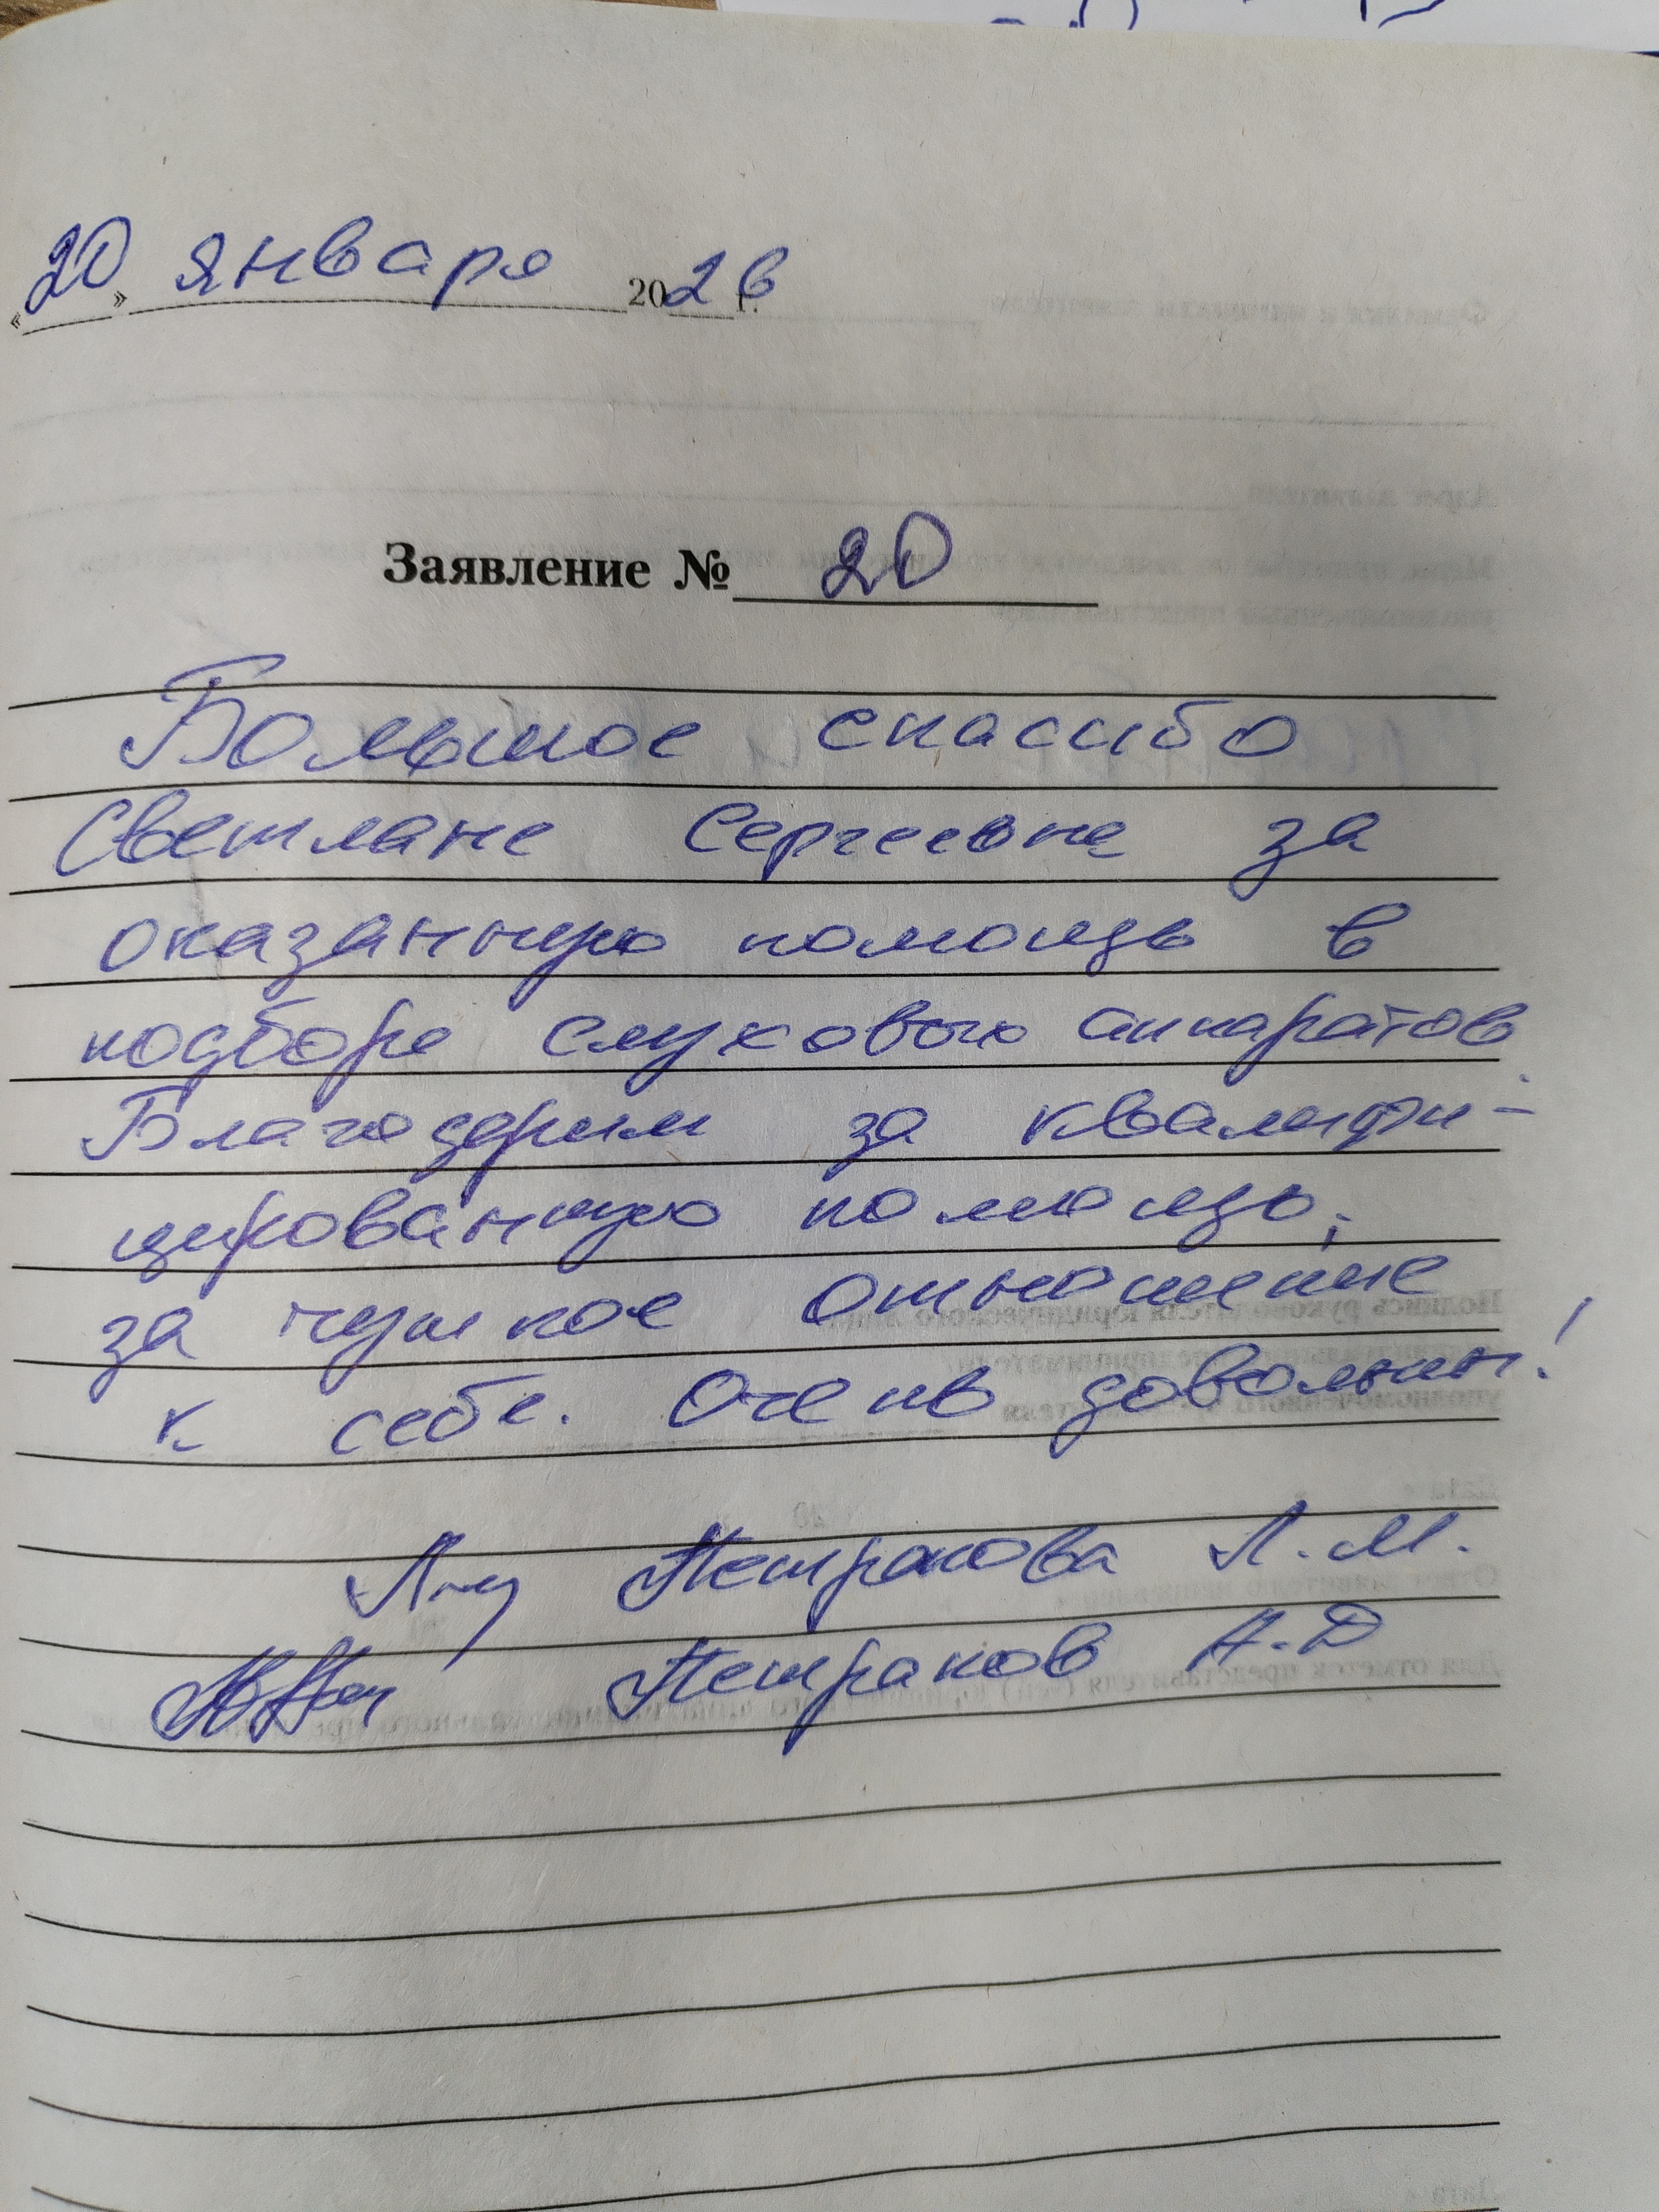 «20» января 2026 г.
Заявление № 20
Большое спасибо
Светлане Сергеевне за
оказанную помощь в
подборе слухового аппаратов
Благодарим за квалифи-
цированную помощь,
за чуткое отношение
к себе. Очень довольны!
Петракова Л.М.
Петраков А.Д